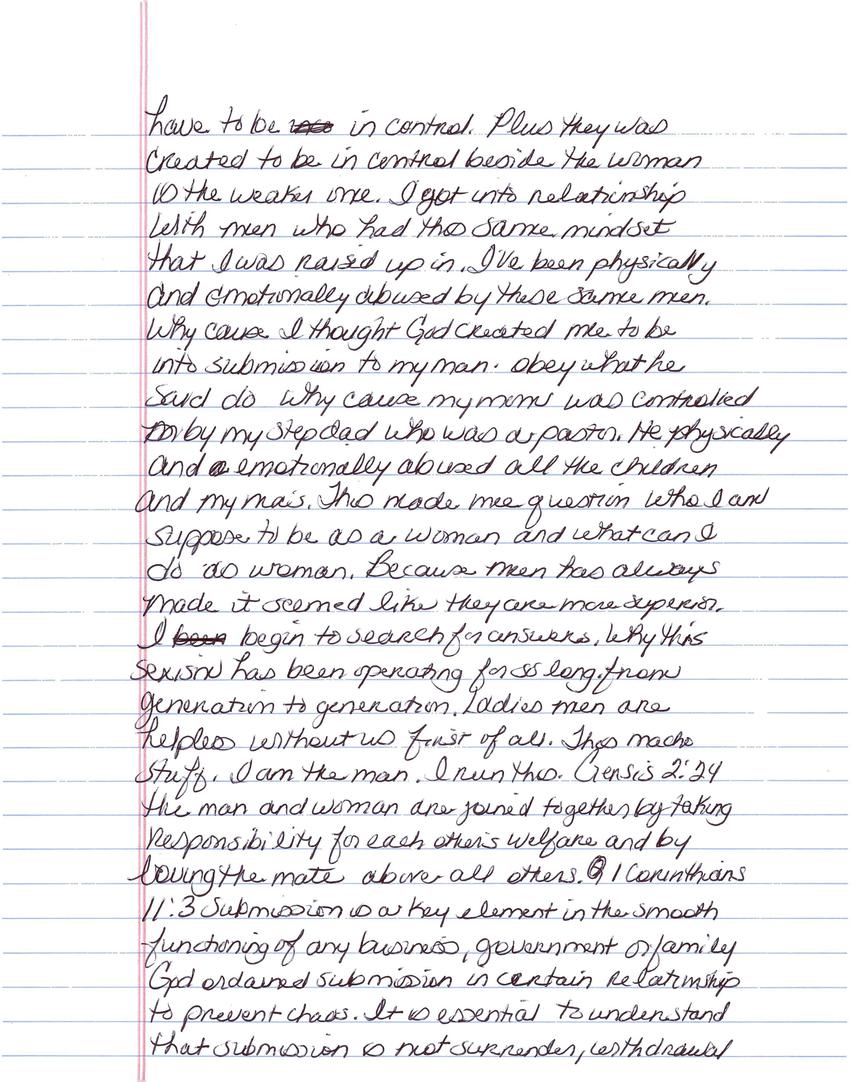 have to be in control. Plus they was
created to be in control beside the woman
is the weaker one. I got into relationship
with men who had this same mindset
that I was raised up in. I've been physically
and emotionally abused by these same men.
Why cause I thought God created me to be
into submission to my man. obey what he
said do why cause my moms was controlled
by my stepdad who was a pastor. He physically
and emotionally abused all the children
and my mais. This made me question who I am
suppose to be as a woman and what can I
do as woman. Because men has always
made it seemed like they are more superior.
I been begin to search for answers. Why this
sexism has been operating for so long from
generation to generation. Ladies men are
helpless without us first of all. This macho
stuff. I am the man. I run this. Genesis 2:24
the man and woman are joined together by taking
responsibility for each other's welfare and by
loving the mate above all others. 1 Corinthians
11:3 Submission is a key element in the smooth
functioning of any business, government or family
God ordained submission in certain relationship
to prevent chaos. It is essential to understand
that submission is not surrender, withdrawal